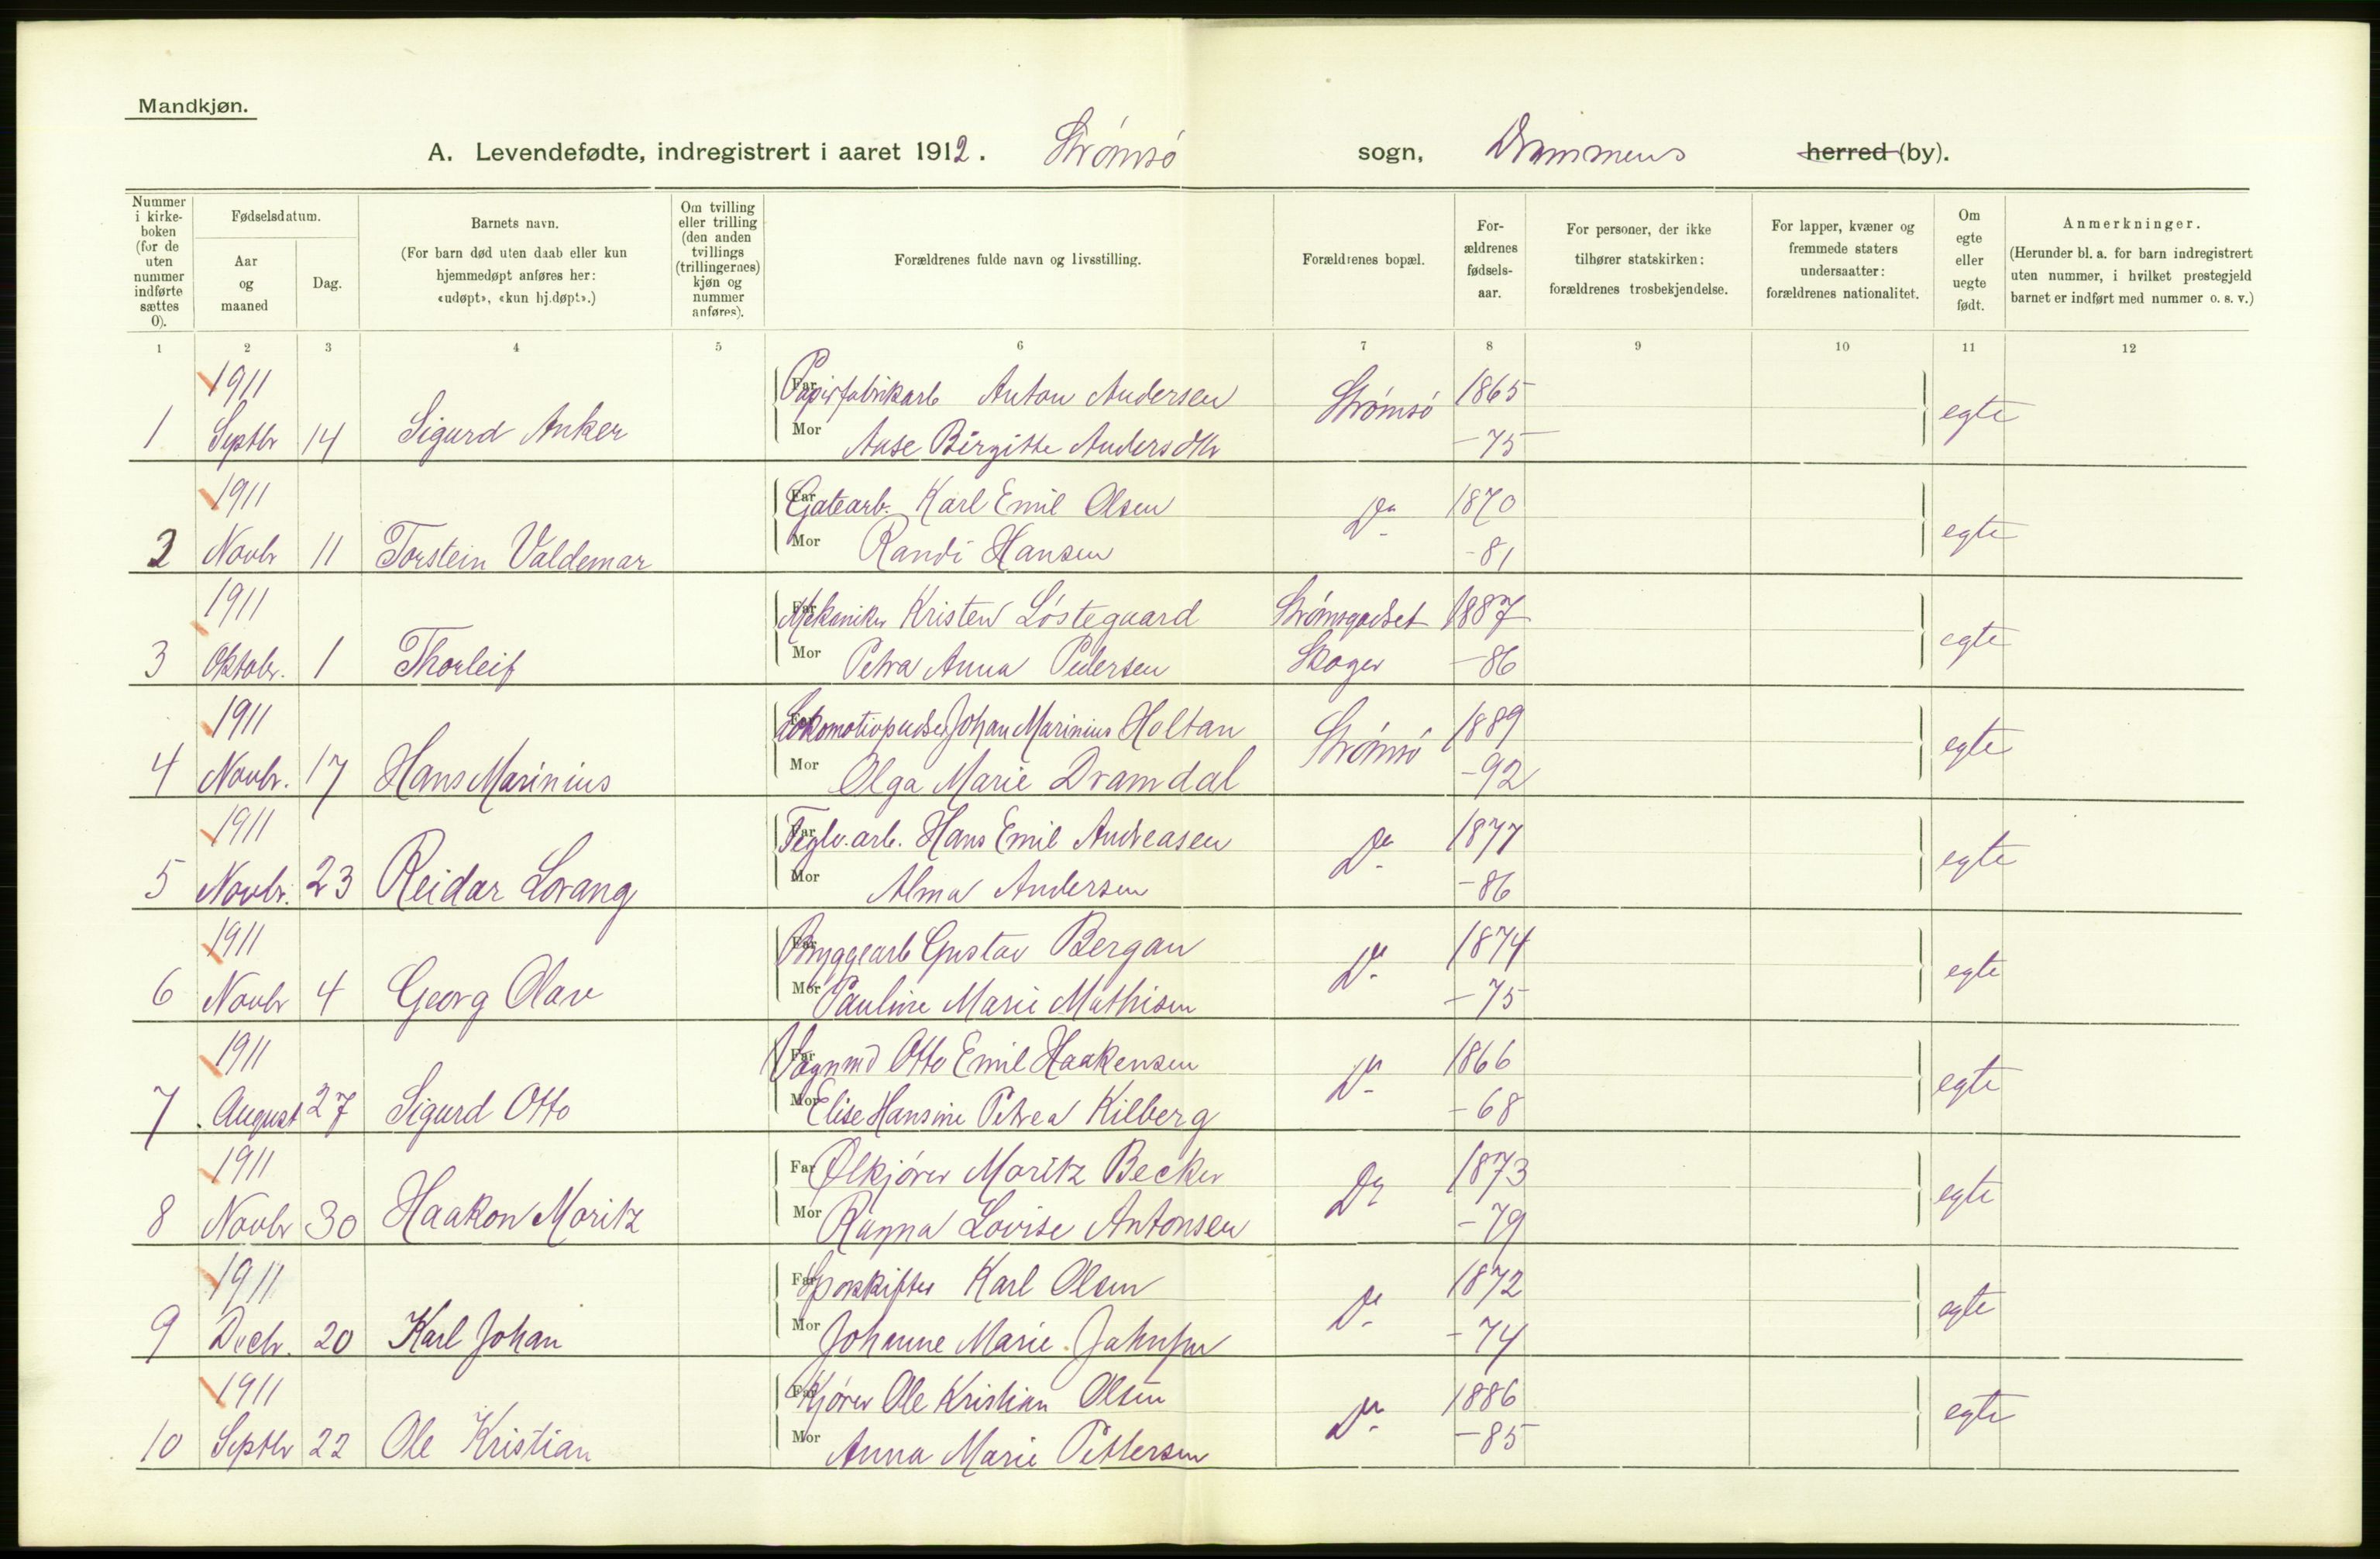 Mandkjøn.
A. Levendefødte, indregistrert i aaret 1912. Strømsø sogn, Drammens herred (by).
Nummer i kirke-boken (for de uten nummer indførte sættes 0).
Fødselsdatum.
Aar og maaned
Dag.
Barnets navn.
(For barn død uten daab eller kun hjemmedøpt anføres her: «udøpt», «kun hj.døpt».)
Om tvilling eller trilling (den anden tvillings (trillingernes) kjøn og nummer anføres).
Forældrenes fulde navn og livsstilling.
Forældrenes bopæl.
For-ældrenes fødsels-aar.
For personer, der ikke tilhører statskirken: forældrenes trosbekjendelse.
For lapper, kvæner og fremmede staters undersaatter: forældrenes nationalitet.
Om egte eller uegte født.
Anmerkninger.
(Herunder bl. a. for barn indregistrert uten nummer, i hvilket prestegjeld barnet er indført med nummer o. s. v.)
1 2 3 4 5 6 7 8 9 10 11 12
1911 Far Papirfabrikarb Anton Andersen Strømsø 1865 egte
1 Septbr 14 Sigurd Anker Mor Anse Birgitte Andersdtr - 75
1911 Far Gatearb. Karl Emil Olsen Do 1870 egte
2 Novbr 11 Torstein Valdemar Mor Randi Hansen - 81
1911 Far Mekaniker Kristen Løstegaard Strømsgodset 1887 egte
3 Oktobr. 1 Thorleif Mor Petra Anna Pedersen Skoger - 86
1911 Far Lokomotivpudser Johan Marinius Holtan Strømsø 1889 egte
4 Novbr. 17 Hans Marinius Mor Olga Marie Dramdal - 92
1911 Far Teglv.arb. Hans Emil Andreasen Do 1877 egte
5 Novbr. 23 Reidar Lorang Mor Alma Andersen - 86
1911 Far Bryggearb Gustav Bergan Do 1874 egte
6 Novbr 4 Georg Olav Mor Pauline Marie Mathisen - 75
1911 Far Vognmd Otto Emil Haakensen Do 1866 egte
7 August 27 Sigurd Otto Mor Elise Hansine Petrea Kilberg - 68
1911 Far Ølkjører Moritz Becker Do 1873 egte
8 Novbr 30 Haakon Moritz Mor Ragna Lovise Antonsen - 79
1911 Far Sporskifter Karl Olsen Do 1872 egte
9 Decbr. 20 Karl Johan Mor Johanne Marie Jahnsen - 74
1911 Far Kjører Ole Kristian Olsen Do 1886 egte
10 Septbr 22 Ole Kristian Mor Anna Marie Pettersen - 85